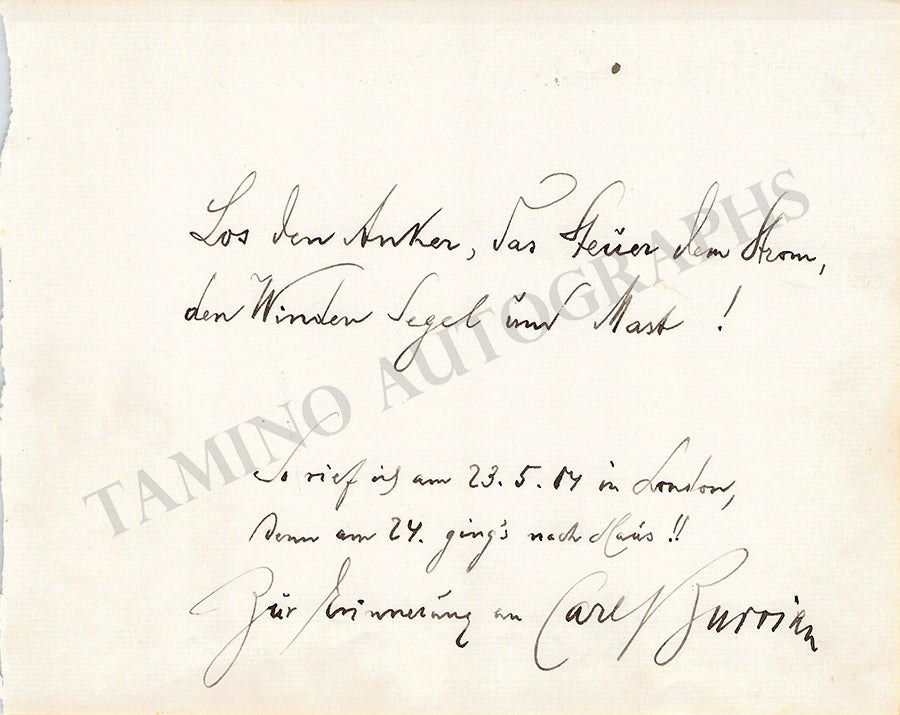 Los den Anker, das Steuer dem Strom,
den Winden Segel und Mast!
So rief ich am 23.5.04 in London,
denn am 24. ging's nach Haus!!
Zur Erinnerung an Carl Burrian
TAMINO AUTOGRAPHS